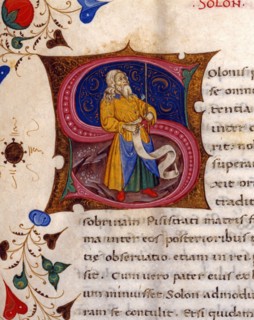 SOLON.
S
olonis p
se omni
tentia
inter c
rit: no
superau
xit ori
tradit
sobrinam Pisistrati matris f
ma inter eos posterioribus
tis obseruatio etiam in rei p
sit. Cum vero pater eius ex b
um minuisset Solon admodu
ram se contulit. Etsi quidam